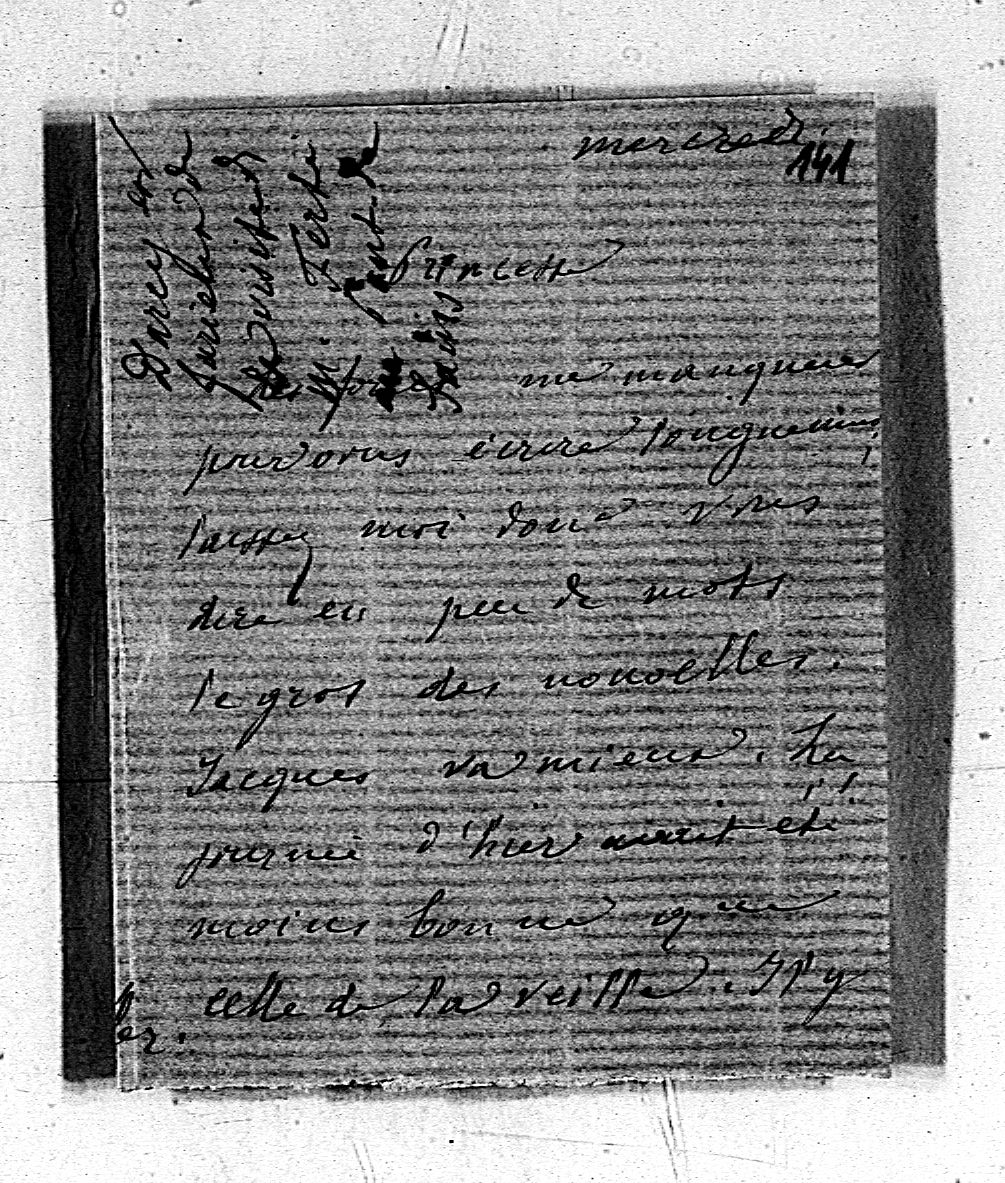 mercredi
141
Princesse
me manquent
pour vous écrire longuement,
laissez moi donc vous
dire en peu de mots
le gros des nouvelles.
Jacques va mieux. La
journée d'hier avait été
moins bonne que
celle de la veille. Il y
Darcy est
de visite
M. Ferté